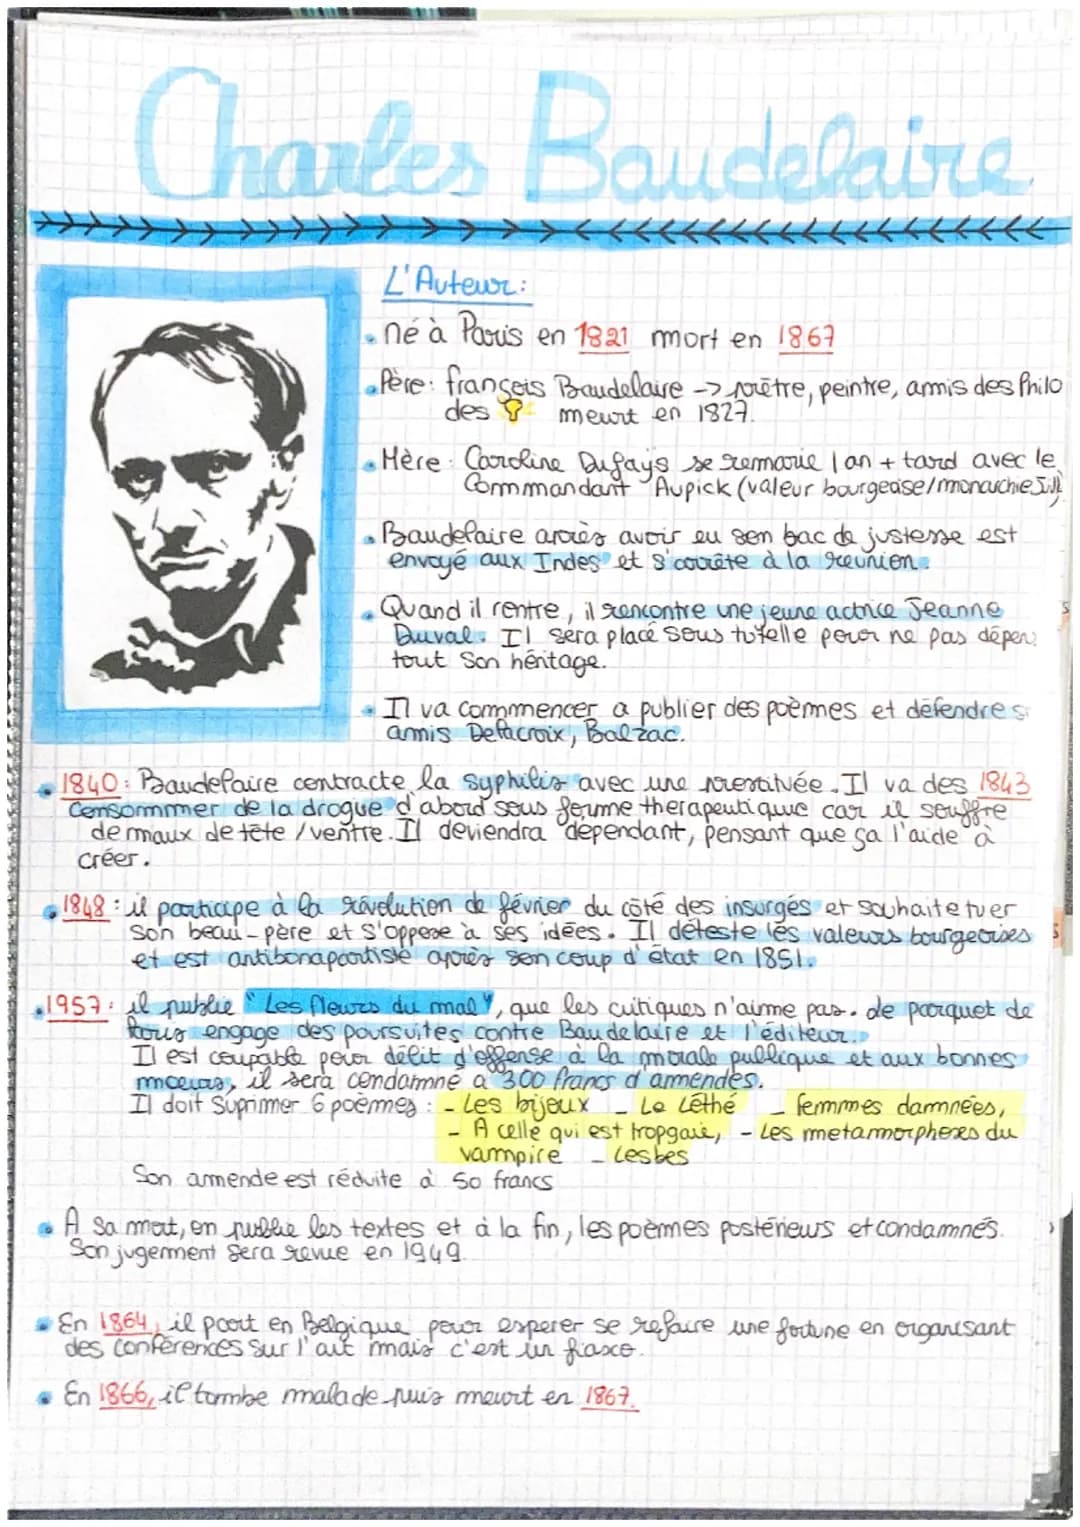 Charles Baudelaire
L'Auteur:
né à Paris en 1821 mort en 1867
Père: françois Baudelaire -> prêtre, peintre, amis des Philo
des meurt en 1827.
Mère: Caroline Dufays se remarie 1 an + tard avec le
Commandant Aupick (valeur bourgeoise/monarchie
Baudelaire après avoir eu son bac de justesse est
envoyé aux Indes et s'arrête à la réunion.
Quand il rentre, il rencontre une jeune actrice Jeanne
Duval. Il sera placé sous tutelle pour ne pas dépen
tout son héritage.
Il va commencer a publier des poèmes et défendre s
amis Delacroix, Balzac.
1840: Baudelaire contracte la syphilis avec une prostituée. Il va des 1843
consommer de la drogue d'abord sous forme therapeutique car il souffre
de maux de tête / ventre. Il deviendra dépendant, pensant que ça l'aide à
créer.
1848: il participe à la révolution de février du côté des insurgés et souhaite tuer
son beau-père et s'oppose à ses idées. Il déteste les valeurs bourgeoises
et est antibonapartiste après son coup d'état en 1851.
1957: il publie "Les fleurs du mal", que les critiques n'aime pas. de parquet de
Paris engage des poursuites contre Baudelaire et l'éditeur.
Il est coupable pour délit d'offense à la morale publique et aux bonnes
moeurs, il sera condamné a 300 francs d'amendes.
Il doit suprimer 6 poèmes: - Les bijoux - Le Léthé - femmes damnées,
- A celle qui est trop gaie, - Les metamorphoses du
vampire - Lesbes
Son amende est réduite à 50 francs
A sa mort, on publie les textes et à la fin, les poèmes postérieurs et condamnés.
Son jugement sera revue en 1949.
En 1864, il part en Belgique pour esperer se refaire une fortune en organisant
des conférences sur l'art mais c'est un fiasco.
En 1866, il tombe malade puis meurt en 1867.